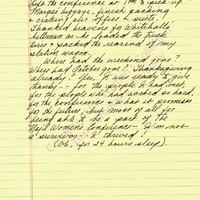 Left the conference at 1 PM to pick up
Margie begone, finish packing
& crating art, office & suite.
Thanked heavens for Whitehalls'
tillerman as he loaded the truck
& packing the rearend of my
station wagon.
Where had the weekend gone?
Where had October gone? Thanksgiving
already? Yes, I was ready to give
thanks -- for the people I had met
for the people who had worked so hard,
for the conference & what it promises
for the future, but most of all for
being able to be a part of the
Nat'l Women's Conference -- I'm not
a survivor -- I thrived!
(Oh, for 24 hours sleep).